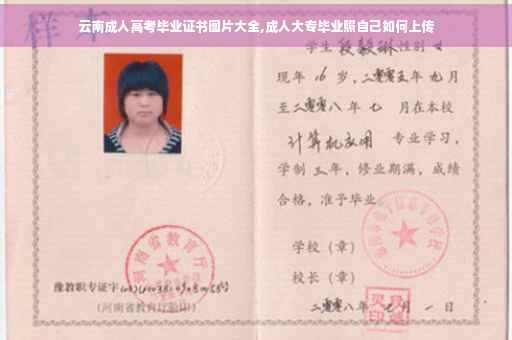 云南成人高考毕业证书图片大全,成人大专毕业照自己如何上传
样本
学生 段毅琳 性别 女
现年 16 岁,二零零五年 九月
至二零零八年 七 月在本校
计算机应用 专业学习,
学制 三 年,修业期满,成绩
合格,准予毕业
学校(章)
校长(章)
河南省教育厅
豫教职专证字
(河南省教育厅验印)
二零零八年 七 月 一 日